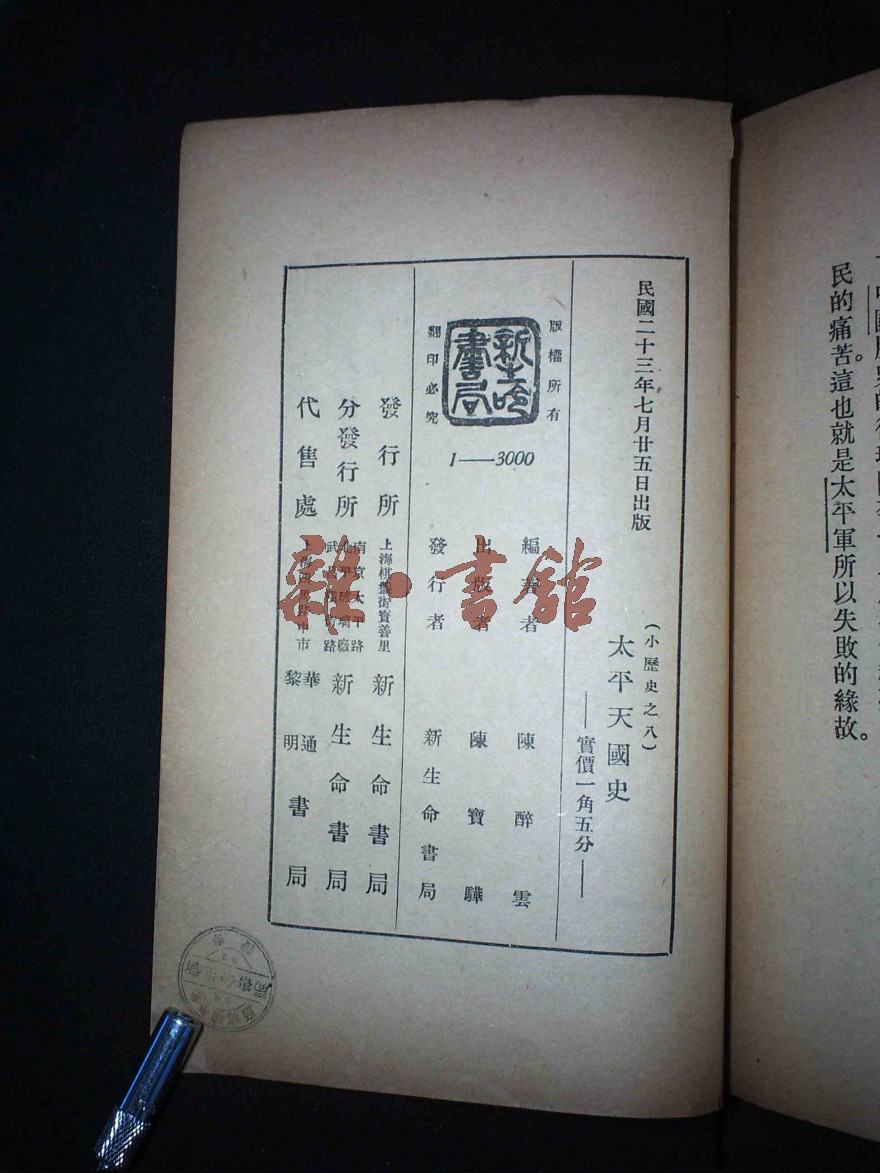 民的痛苦。這也就是太平軍所以失敗的緣故。
民國二十三年七月廿五日出版
(小歷史之八)
太平天國史
——實價一角五分——
版權所有
新生命書局
翻印必究
1——3000
編著者 陳醉雲
出版者 陳寶驊
發行者 新生命書局
發行所 上海棋盤街寶善里 新生命書局
分發行所 南京太平路 北平琉璃廠 武昌橫街路 新生命書局
代售處 上海四馬路中市 華通 黎明 書局
雜·書館